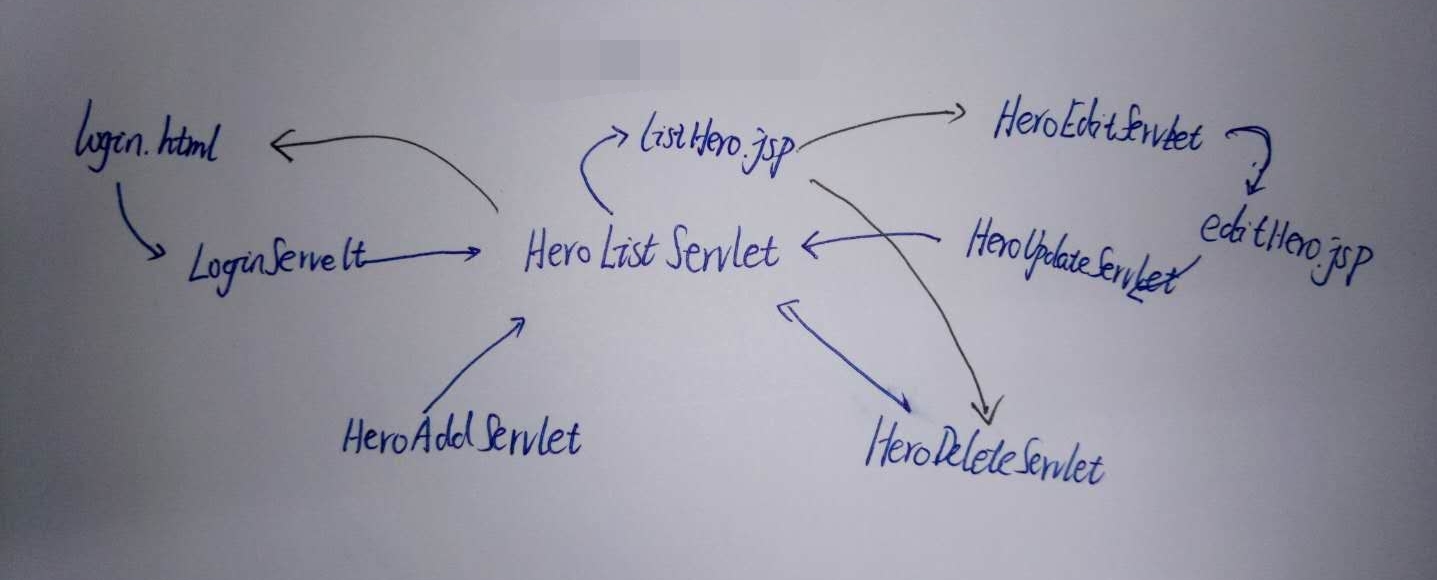 login.html
listHero.jsp
HeroEditServlet
LoginServelt
HeroListServlet
HeroUpdateServlet
editHero.jsp
HeroAddServlet
HeroDeleteServlet